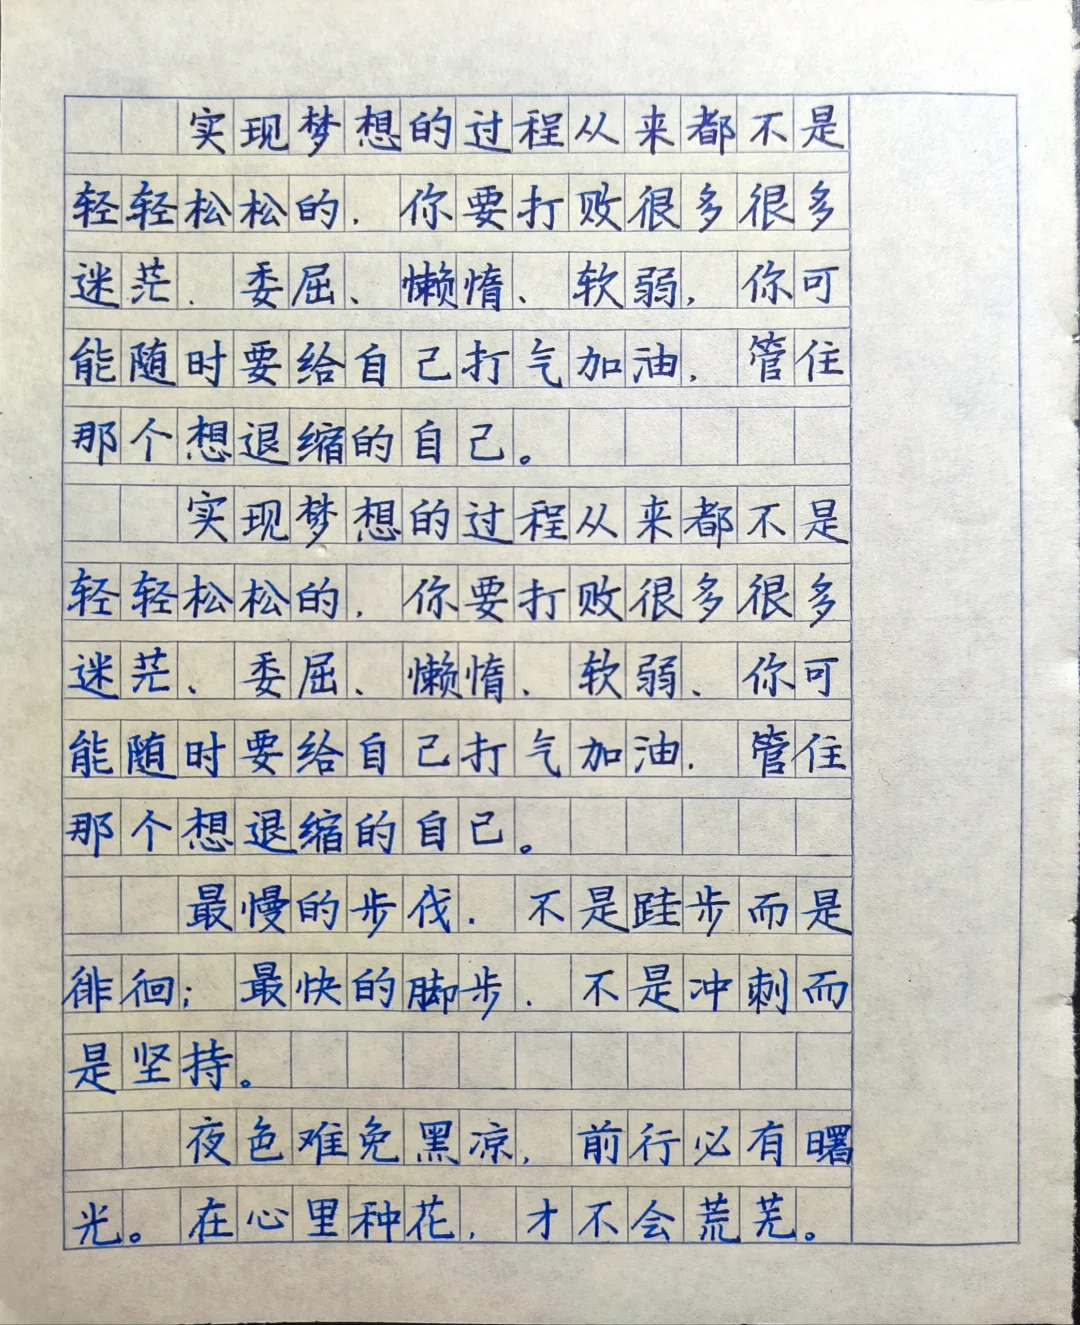 实现梦想的过程从来都不是
轻轻松松的，你要打败很多很多
迷茫、委屈、懒惰、软弱，你可
能随时要给自己打气加油，管住
那个想退缩的自己。
实现梦想的过程从来都不是
轻轻松松的，你要打败很多很多
迷茫、委屈、懒惰、软弱、你可
能随时要给自己打气加油，管住
那个想退缩的自己。
最慢的步伐，不是跬步而是
徘徊；最快的脚步，不是冲刺而
是坚持。
夜色难免黑凉，前行必有曙
光。在心里种花，才不会荒芜。